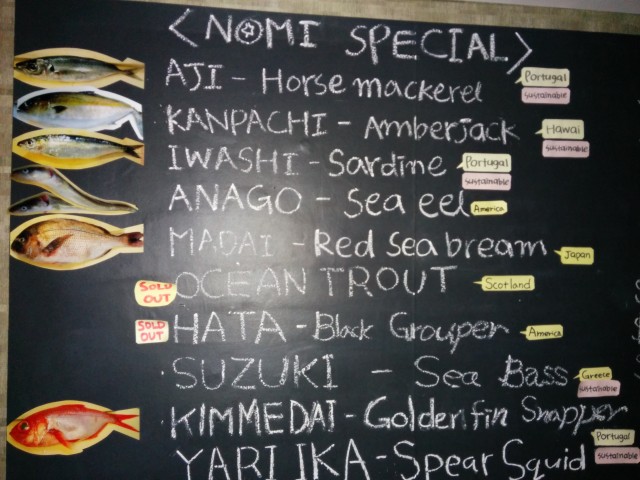 <NOMI SPECIAL>
AJI - Horse mackerel Portugal sustainable
KANPACHI - Amberjack Hawai sustainable
IWASHI - Sardine Portugal sustainable
ANAGO - Sea eel America
MADAI - Red Sea bream Japan
SOLD OUT OCEAN TROUT Scotland
SOLD OUT HATA - Black Grouper America
SUZUKI - Sea Bass Greece suntainable
KIMMEDAI - Goldenfin Snapper
YARI IKA - Spear Squid Portugal sustainable